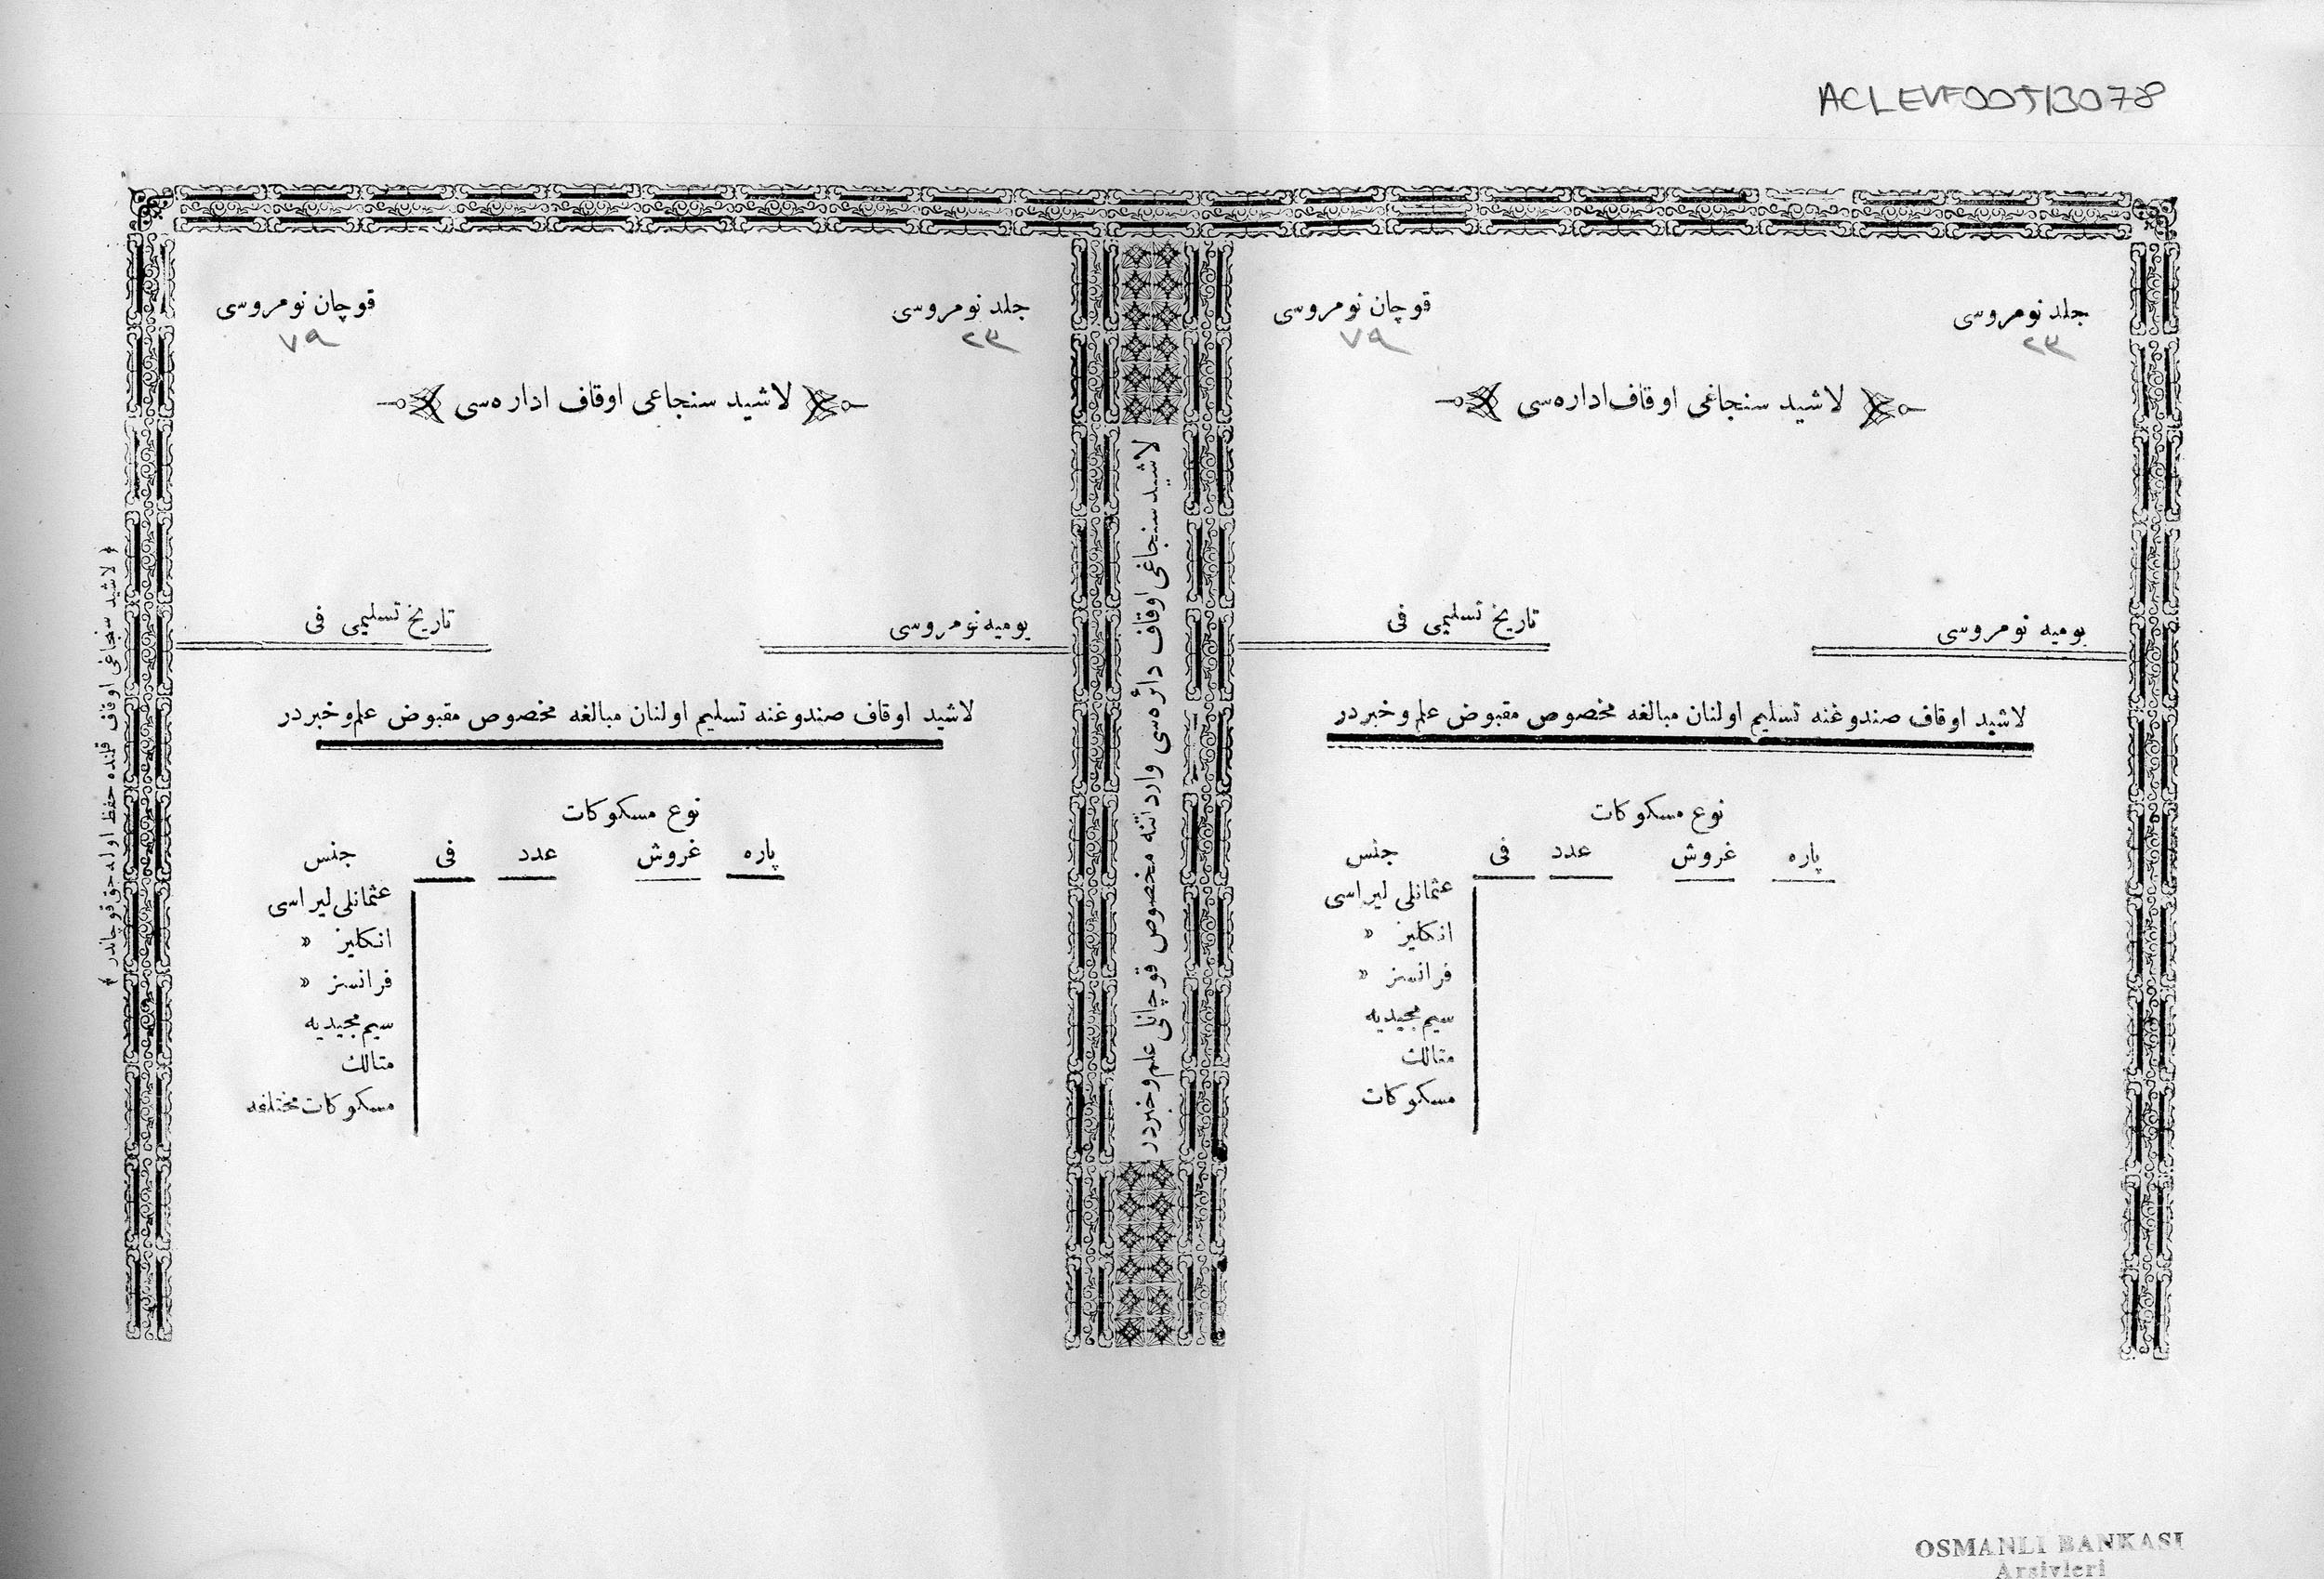 ACLEVF00513078
جلد نومروسی
قوچان نومروسی
٢٣
٧٩
لاشید سنجاغی اوقاف اداره‌سی
یومیه نومروسی
تاریخ تسلیمی فی
لاشید اوقاف صندوغنه تسلیم اولنان مبالغه مخصوص مقبوض علم و خبردر
نوع مسكوكات
پاره غروش عدد فی جنس
عثمانلی لیراسی
انكلیز »
فرانسز »
سیم مجیدیه
متالك
مسكوكات
لاشید سنجاغی اوقاف دائره‌سی وارداتنه مخصوص قوچانلی علم و خبردر
جلد نومروسی
قوچان نومروسی
٢٣
٧٩
لاشید سنجاغی اوقاف اداره‌سی
یومیه نومروسی
تاریخ تسلیمی فی
لاشید اوقاف صندوغنه تسلیم اولنان مبالغه مخصوص مقبوض علم و خبردر
نوع مسكوكات
پاره غروش عدد فی جنس
عثمانلی لیراسی
انكلیز »
فرانسز »
سیم مجیدیه
متالك
مسكوكات مختلفه
لاشید سنجاغی اوقاف قلنده حفظ اوله‌جق قوچاندر
OSMANLI BANKASI
Arşivleri